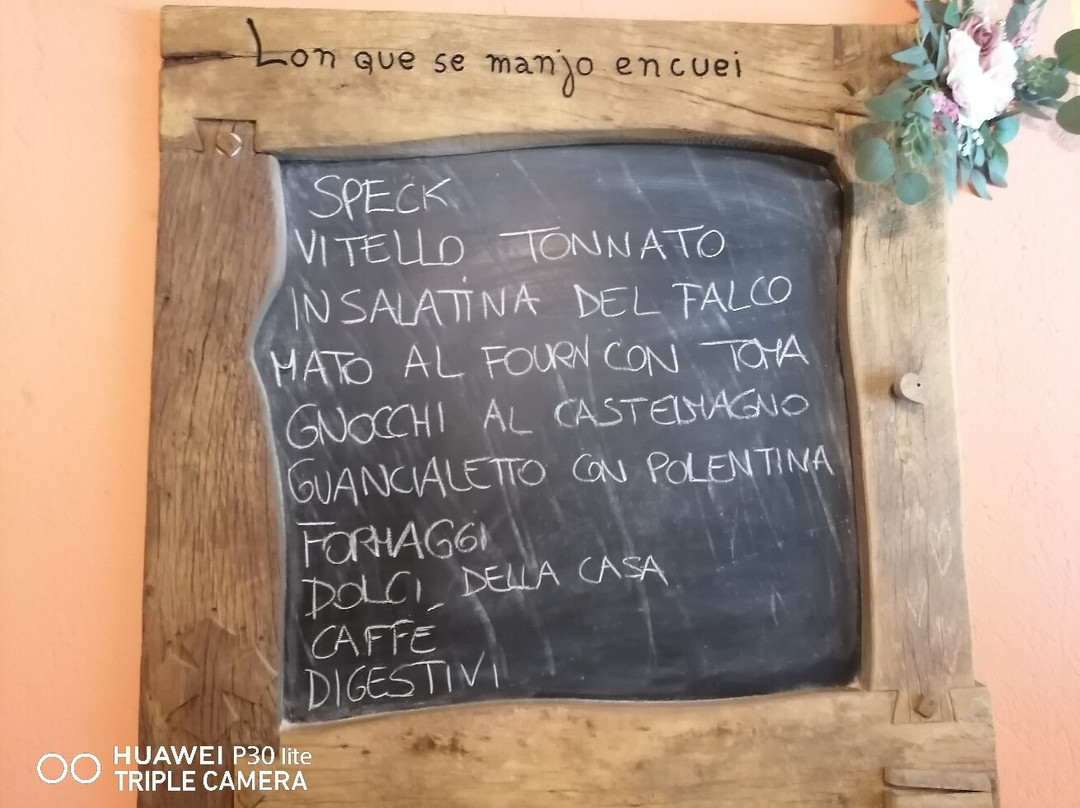 Lon que se manjo encuei
SPECK
VITELLO TONNATO
INSALATINA DEL FALCO
MATO AL FOURN CON TOMA
GNOCCHI AL CASTELMAGNO
GUANCIALETTO CON POLENTINA
FORMAGGI
DOLCI DELLA CASA
CAFFÈ
DIGESTIVI
HUAWEI P30 lite
TRIPLE CAMERA